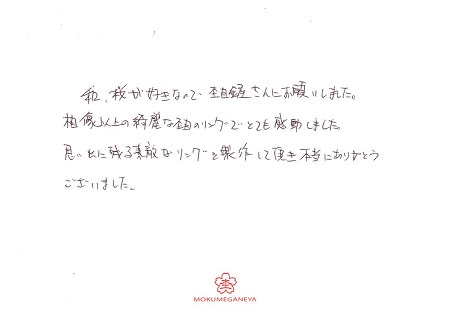 和、桜が好きなので杢目屋さんにお願いしました。
想像以上の綺麗な杢目のリングでとても感動しました。
思い出に残る素敵なリングを製作して頂き本当にありがとう
ございました。
MOKUMEGANEYA